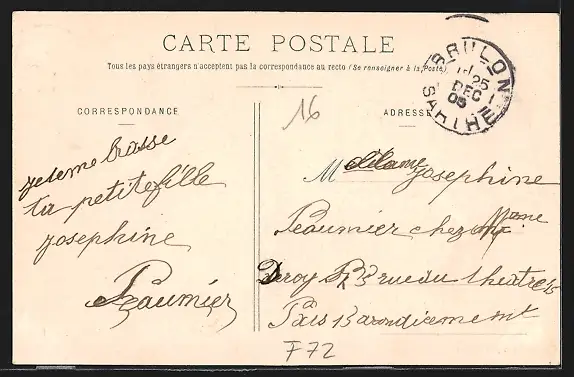 CARTE POSTALE
Tous les pays étrangers n'acceptent pas la correspondance au recto (Se renseigner à la Poste)
CORRESPONDANCE
16
ADRESSE
BRULON
25
DEC
05
SARTHE
je teme brasse
ta petite fille
josephine
Peaumier
Madame josephine
Peaumier chez Mme
Deroy rue du theatre
Paris 15 arondicement
F72